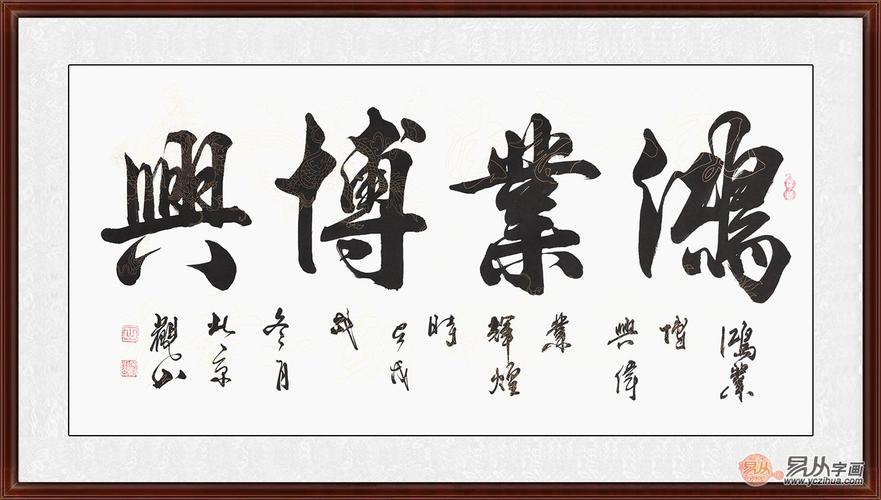 鴻業博興
鴻業
博
興偉
業
輝煌
時
戊戌
冬月
北京
觀山
易从
易从字画
www.yczihua.com